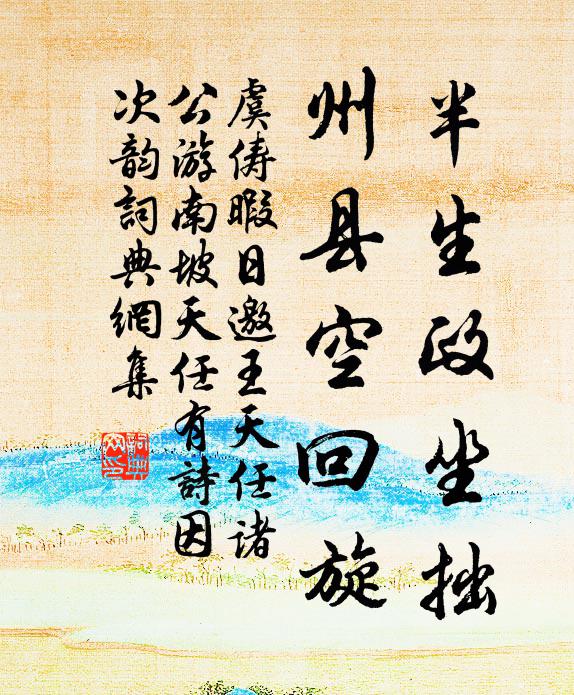 半生政坐拙
州县空回旋
虞俦暇日邀王天任诸
公游南坡天任有詩因
次韵詞典網集